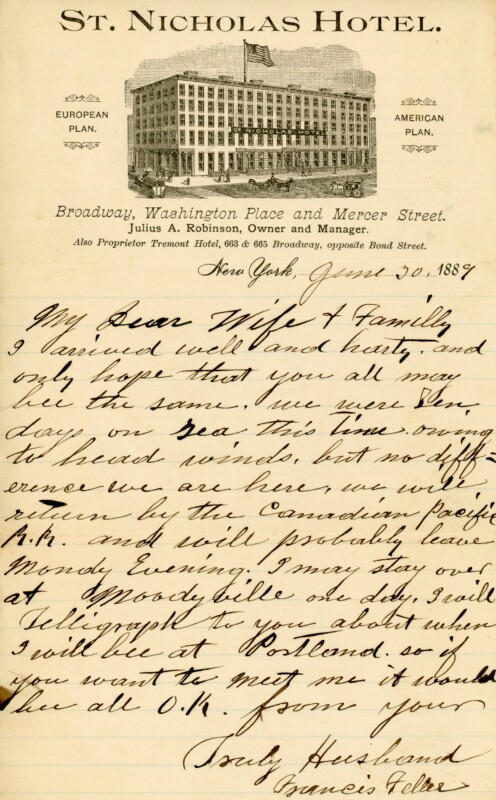 ST. NICHOLAS HOTEL.
EUROPEAN
PLAN.
ST. NICHOLAS HOTEL
AMERICAN
PLAN.
Broadway, Washington Place and Mercer Street.
Julius A. Robinson, Owner and Manager.
Also Proprietor Tremont Hotel, 663 & 665 Broadway, opposite Bond Street.
New York, June 30, 1889
My Dear Wife & Familly
I arrived well and harty. and
only hope that you all may
bee the same. we were
days on Sea this time. owing
to head winds. but no diff=
erence we are here, we will
return by the Canadian Pacific
R.R. and will probably leave
Mondy Evening. I may stay over
at Moodyville one day, I will
Telligraph to you about when
I will bee at Portland. so if
you want to meet me it would
bee all O.K. from your
Truly Husband
Francis Feller